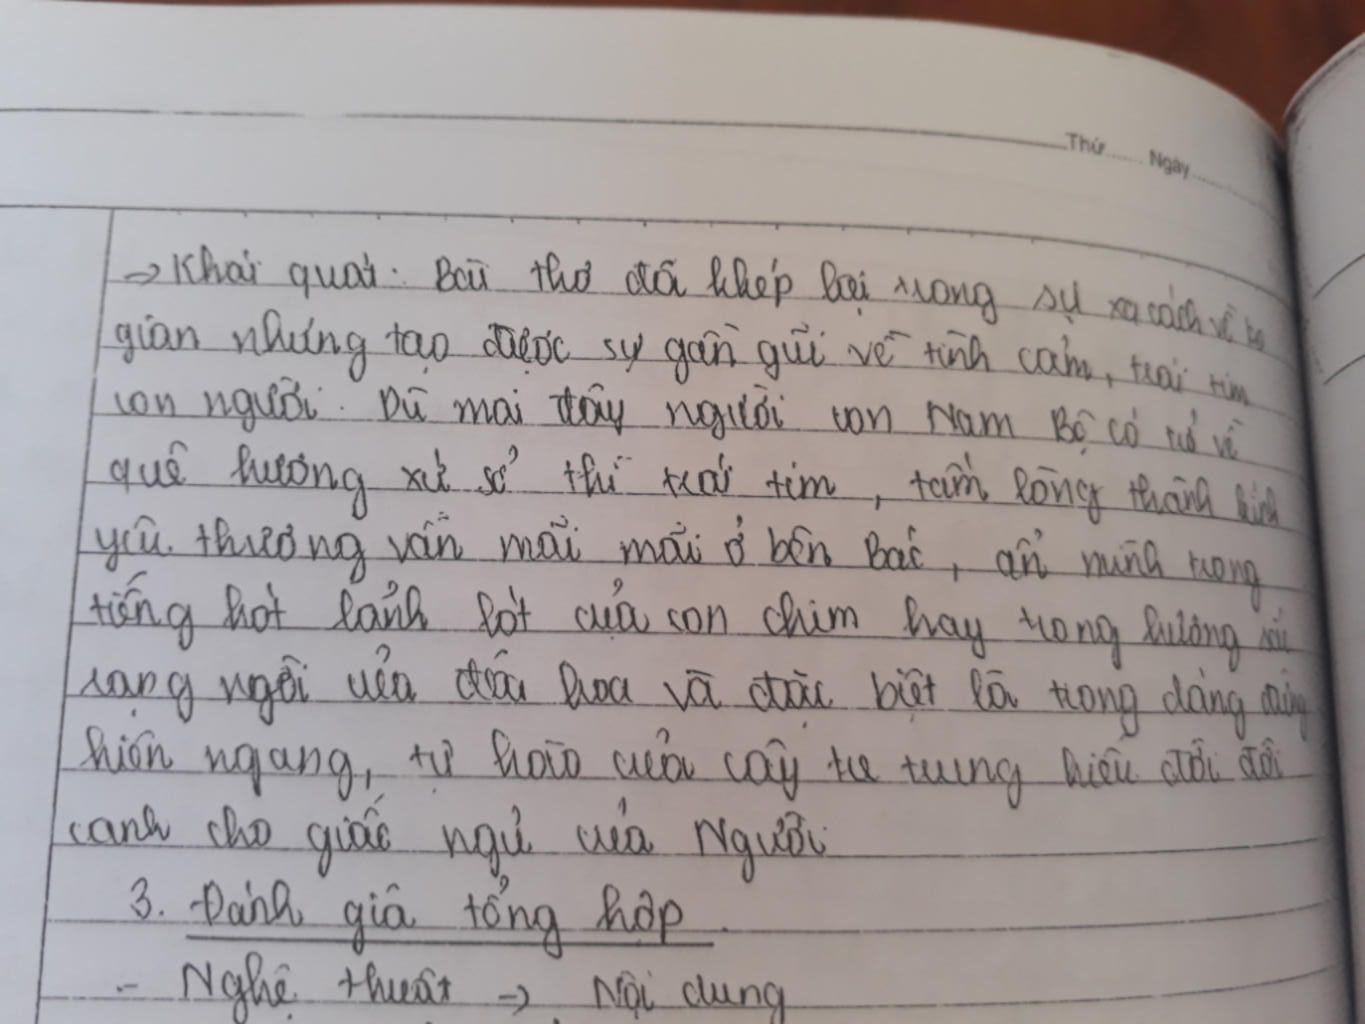 Thứ...... Ngày.......
→ Khái quát: Bài thơ đã khép lại trong sự xa cách về
gian nhưng tạo được sự gần gũi về tình cảm, trái tim
con người. Dù mai đây người con Nam Bộ có trở về
quê hương xứ sở thì trái tim, tấm lòng thành kính
yêu thương vẫn mãi mãi ở bên Bác, ẩn mình trong
tiếng hót lảnh lót của con chim hay trong hương sắc
rạng ngời của đóa hoa và đặc biệt là trong dáng đứng
hiên ngang, tự hào của cây tre trung hiếu đời đời
canh cho giấc ngủ của Người.
3. Đánh giá tổng hợp.
- Nghệ thuật → Nội dung